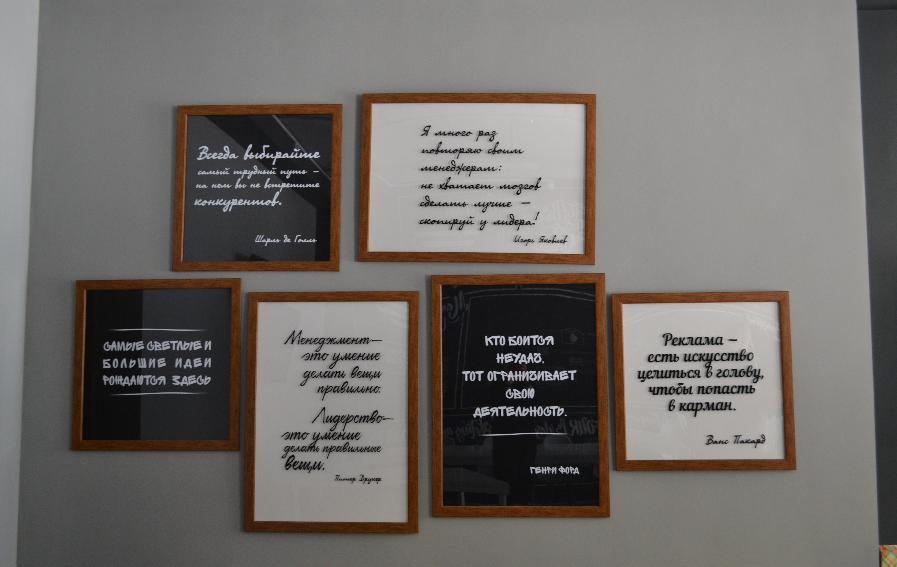 Всегда выбирайте
самый трудный путь —
на нем вы не встретите
конкурентов.
Шарль де Голль
Я много раз
повторяю своим
менеджерам:
не хватает мозгов
сделать лучше —
скопируй у лидера!
Игорь Яковлев
САМЫЕ СВЕТЛЫЕ И
БОЛЬШИЕ ИДЕИ
РОЖДАЮТСЯ ЗДЕСЬ
Менеджмент—
это умение
делать вещи
правильно.
Лидерство—
это умение
делать правильные
вещи.
Питер Друкер
КТО БОИТСЯ
НЕУДАЧ,
ТОТ ОГРАНИЧИВАЕТ
СВОЮ
ДЕЯТЕЛЬНОСТЬ.
ГЕНРИ ФОРД
Реклама —
есть искусство
целиться в голову,
чтобы попасть
в карман.
Ванс Пакард